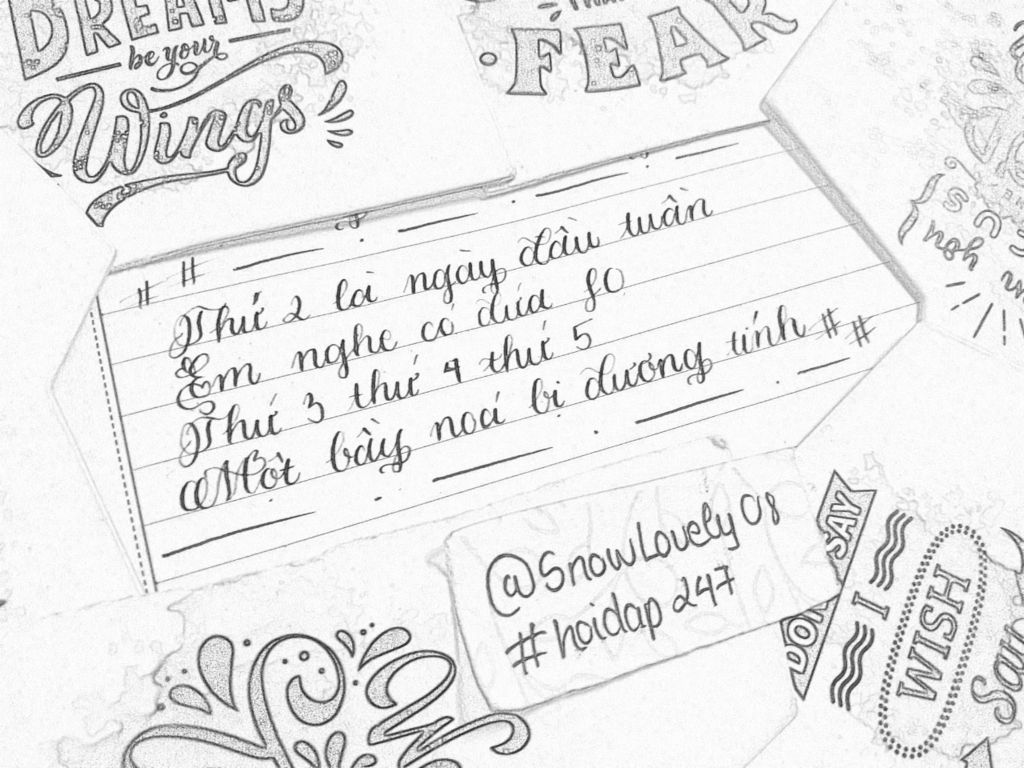 DREAMS
be your
Wings
FEAR
# #
Thứ 2 là ngày đầu tuần
Em nghe có đứa f0
Thứ 3 thứ 4 thứ 5
Một bầy noá bị dương tính # #
@SnowLovely08
#hoidap247
SAY
I
WISH